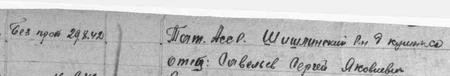 Без проп 29.8.42
Тат. АссР. Шишлинский Р-н д
отец: Савельев Сергей Яковлевич